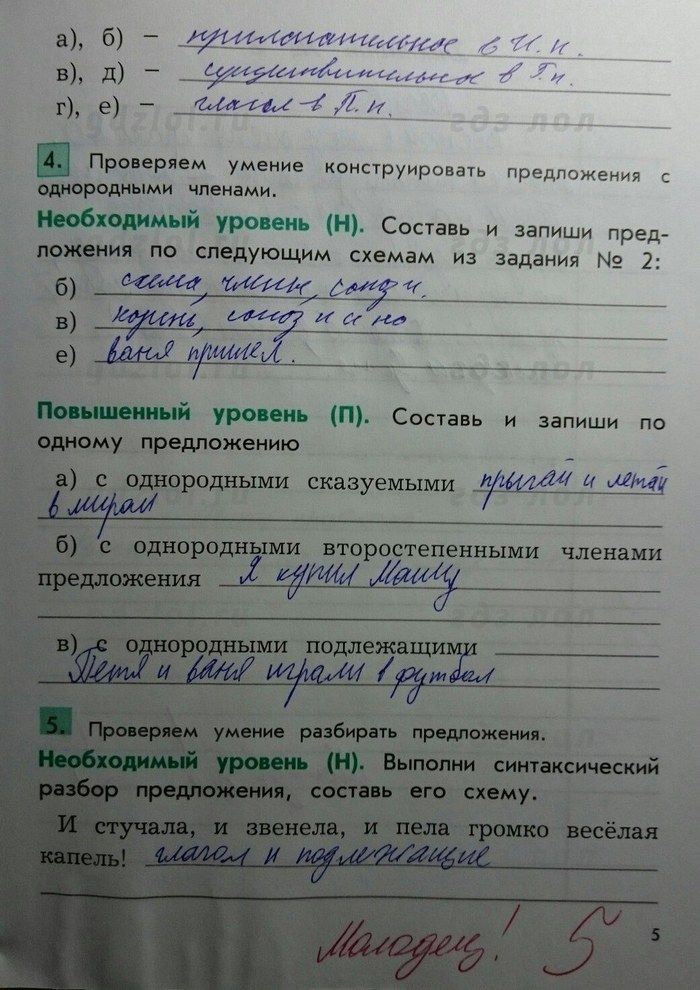 а), б) – прилагательное в И.п.
в), д) – существительное в Т.п.
г), е) – глагол в П.п.
4. Проверяем умение конструировать предложения с
однородными членами.
Необходимый уровень (Н). Составь и запиши пред-
ложения по следующим схемам из задания № 2:
б) схема, члены, союз и.
в) корень, союз и и но
е) ваня пришел.
Повышенный уровень (П). Составь и запиши по
одному предложению
а) с однородными сказуемыми прыгай и летай
в мирам
б) с однородными второстепенными членами
предложения Я купил Машу
в) с однородными подлежащими
Петя и ваня играли в футбол
5. Проверяем умение разбирать предложения.
Необходимый уровень (Н). Выполни синтаксический
разбор предложения, составь его схему.
И стучала, и звенела, и пела громко весёлая
капель! глагол и подлежащие
Молодец! 5
5